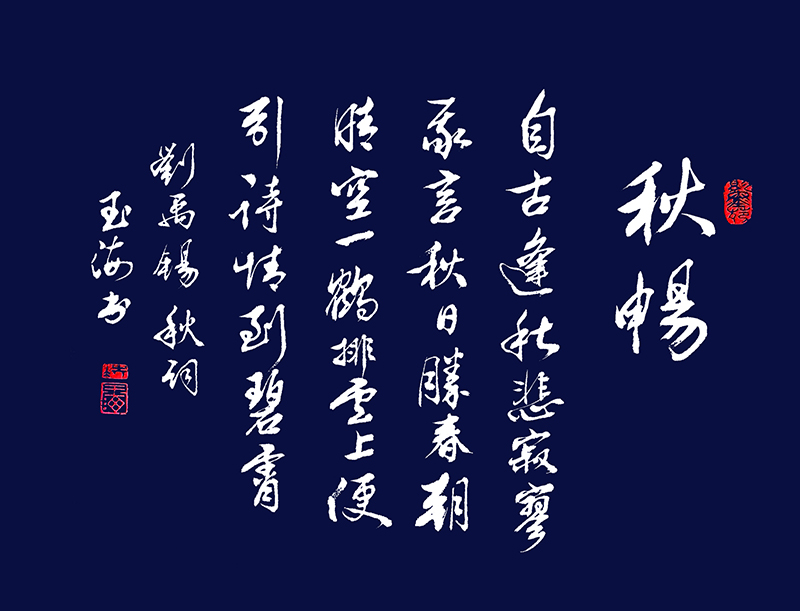 秋暢
自古逢秋悲寂寥
我言秋日勝春朝
晴空一鶴排雲上便
引詩情到碧霄
劉禹錫秋詞
玉海书